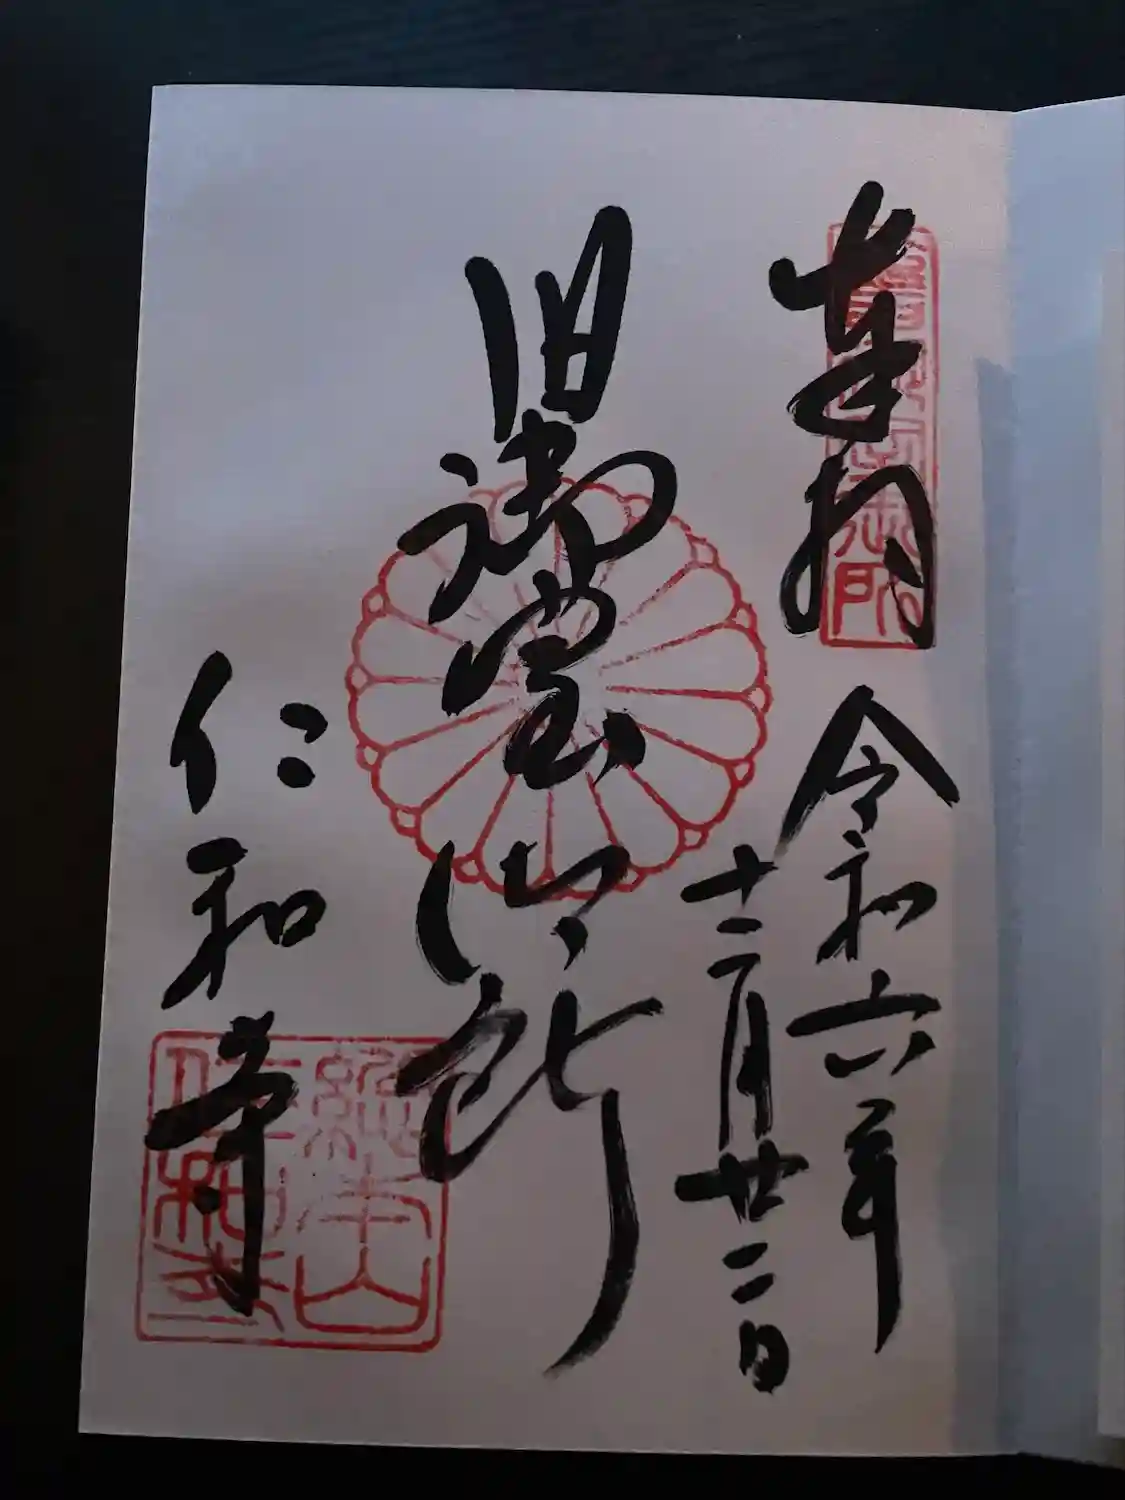 奉拝
令和六年
十二月廿二日
旧御室御所
仁和寺
總本山
仁和寺